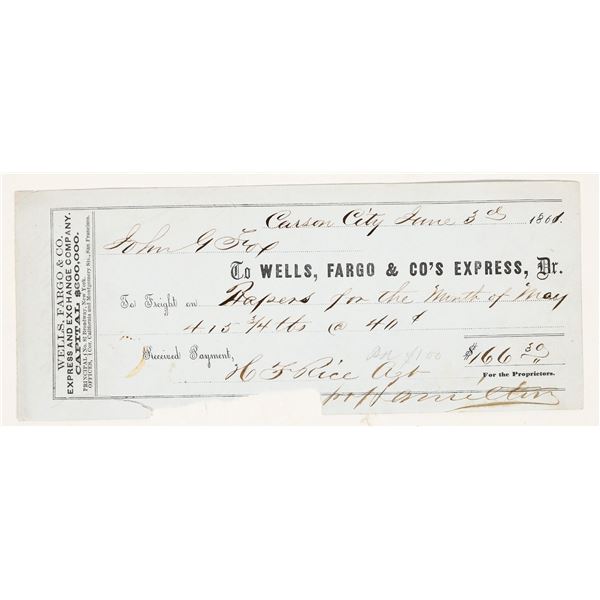 WELLS, FARGO & CO.
EXPRESS AND EXCHANGE COMPANY.
CAPITAL $600,000.
PRINCIPAL OFFICES, No. 82 Broadway, New York. Cor. California and Montgomery Sts., San Francisco.
Carson City June 3rd 1861.
John G Fox
To WELLS, FARGO & CO'S EXPRESS, Dr.
To Freight on Papers for the Month of May
415 3/4 lbs @ 40¢
Received Payment, $166 30
H F Rice Agt
For the Proprietors.
pr Hamilton